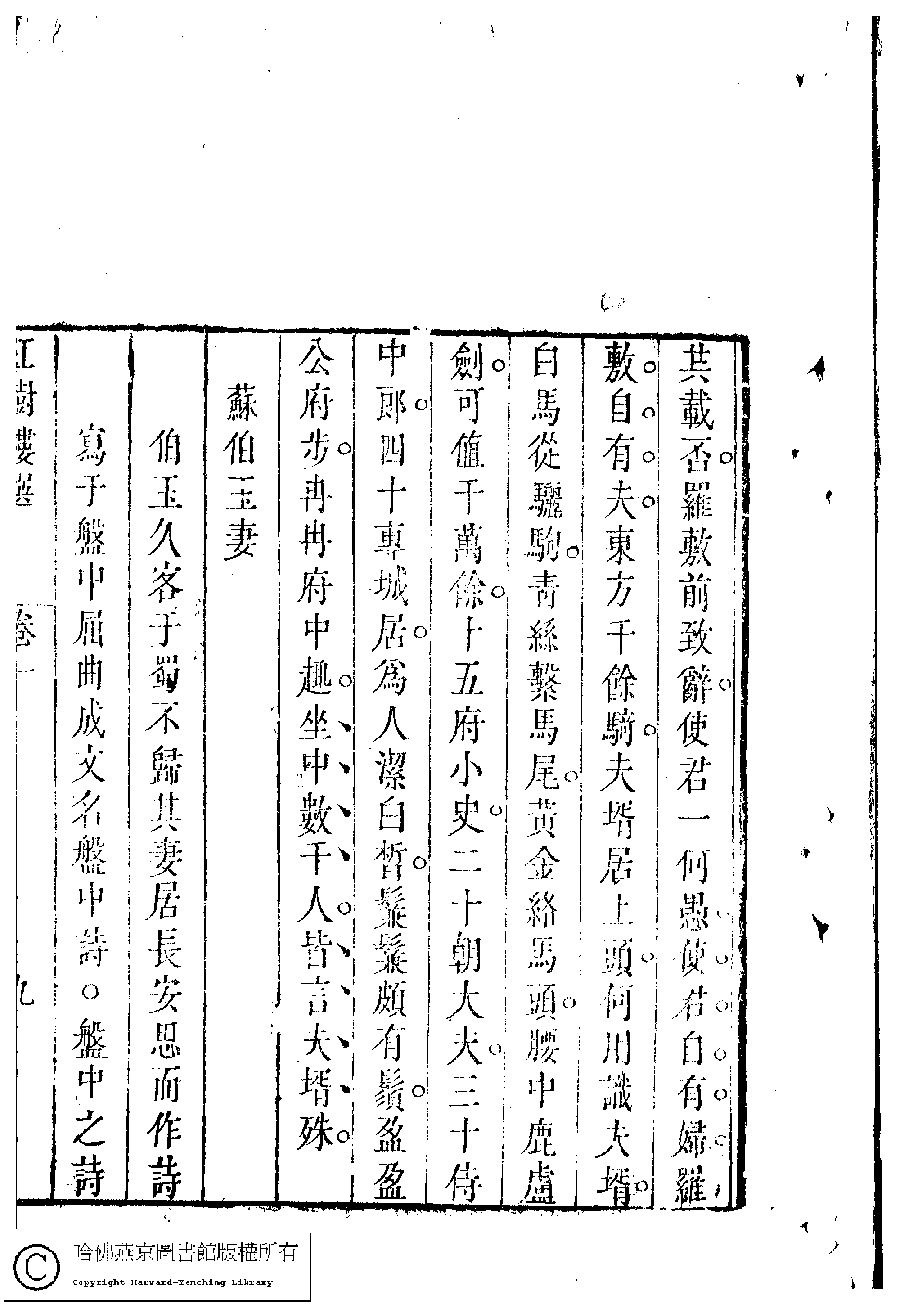 共載否羅敷前致辭使君一何愚使君自有婦羅
敷自有夫東方千餘騎夫壻居上頭何用識夫壻
白馬從驪駒青絲繫馬尾黃金絡馬頭腰中鹿盧
劍可值千萬餘十五府小史二十朝大夫三十侍
中郎四十專城居爲人潔白晳鬑鬑頗有鬚盈盈
公府步冉冉府中趨坐中數千人皆言夫壻殊
蘇伯玉妻
伯玉久客于蜀不歸其妻居長安思而作詩
寫于盤中屈曲成文名盤中詩○盤中之詩
紅樹樓選 卷一 九
哈佛燕京圖書館版權所有
Copyright Harvard-Yenching Library